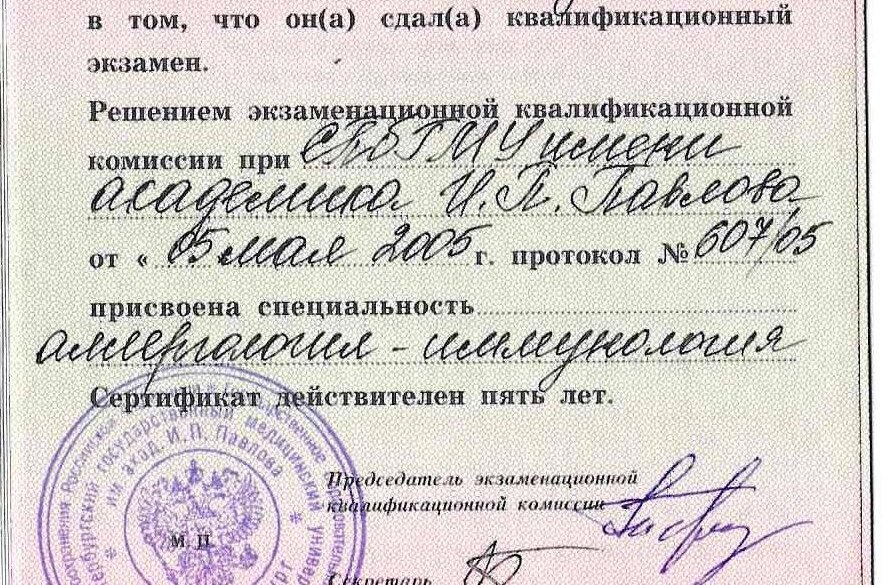 в том, что он(а) сдал(а) квалификационный
экзамен.
Решением экзаменационной квалификационной
комиссии при СПбГМУ имени
академика И.П. Павлова
от « 05 мая 2005 г. протокол № 607/05
присвоена специальность
аллергология - иммунология
Сертификат действителен пять лет.
Председатель экзаменационной
квалификационной комиссии
М П
Секретарь
государственный медицинский
им акад. И.П. Павлова